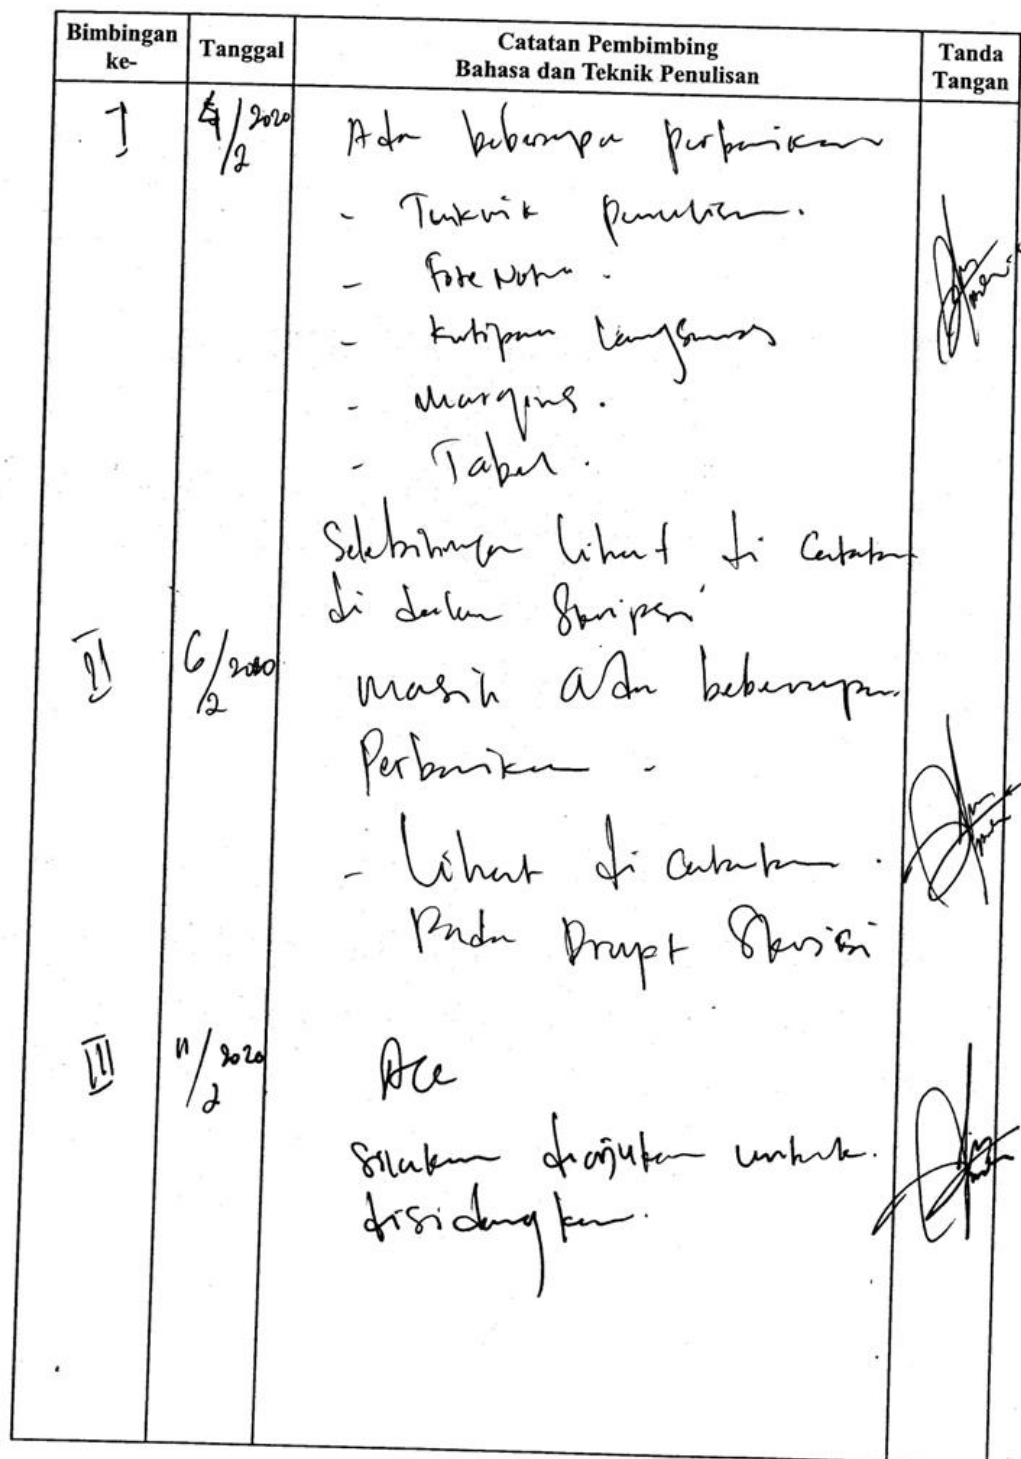 Bimbingan ke-
Tanggal
Catatan Pembimbing
Bahasa dan Teknik Penulisan
Tanda Tangan
I
4/2 2020
Ada beberapa perbaikan
- Teknik penulisan.
- Fote Note.
- Kutipan langsung
- Margins.
- Tabel.
Selebihnya lihat di Catatan
di dalam Skripsi
II
6/2 2020
masih ada beberapa
Perbaikan -
- Lihat di catatan.
Pada Drapt Skripsi
III
11/2 2020
Acc
Silakan diajukan untuk.
disidangkan.